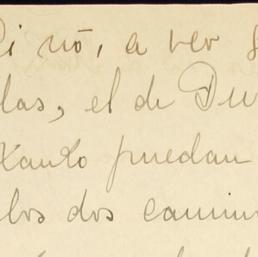 Si nó, a ver
las, el de Du
Xanto puedan
los dos camin